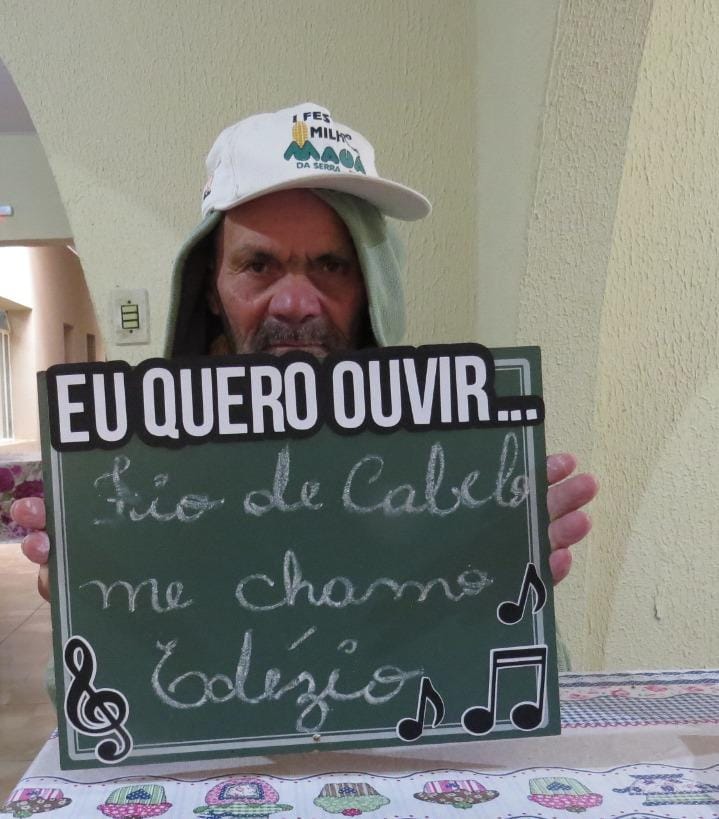 I FES
MILHO
MAUÁ
DA SERRA
EU QUERO OUVIR...
Fio de Cabelo
me chamo
Edézio